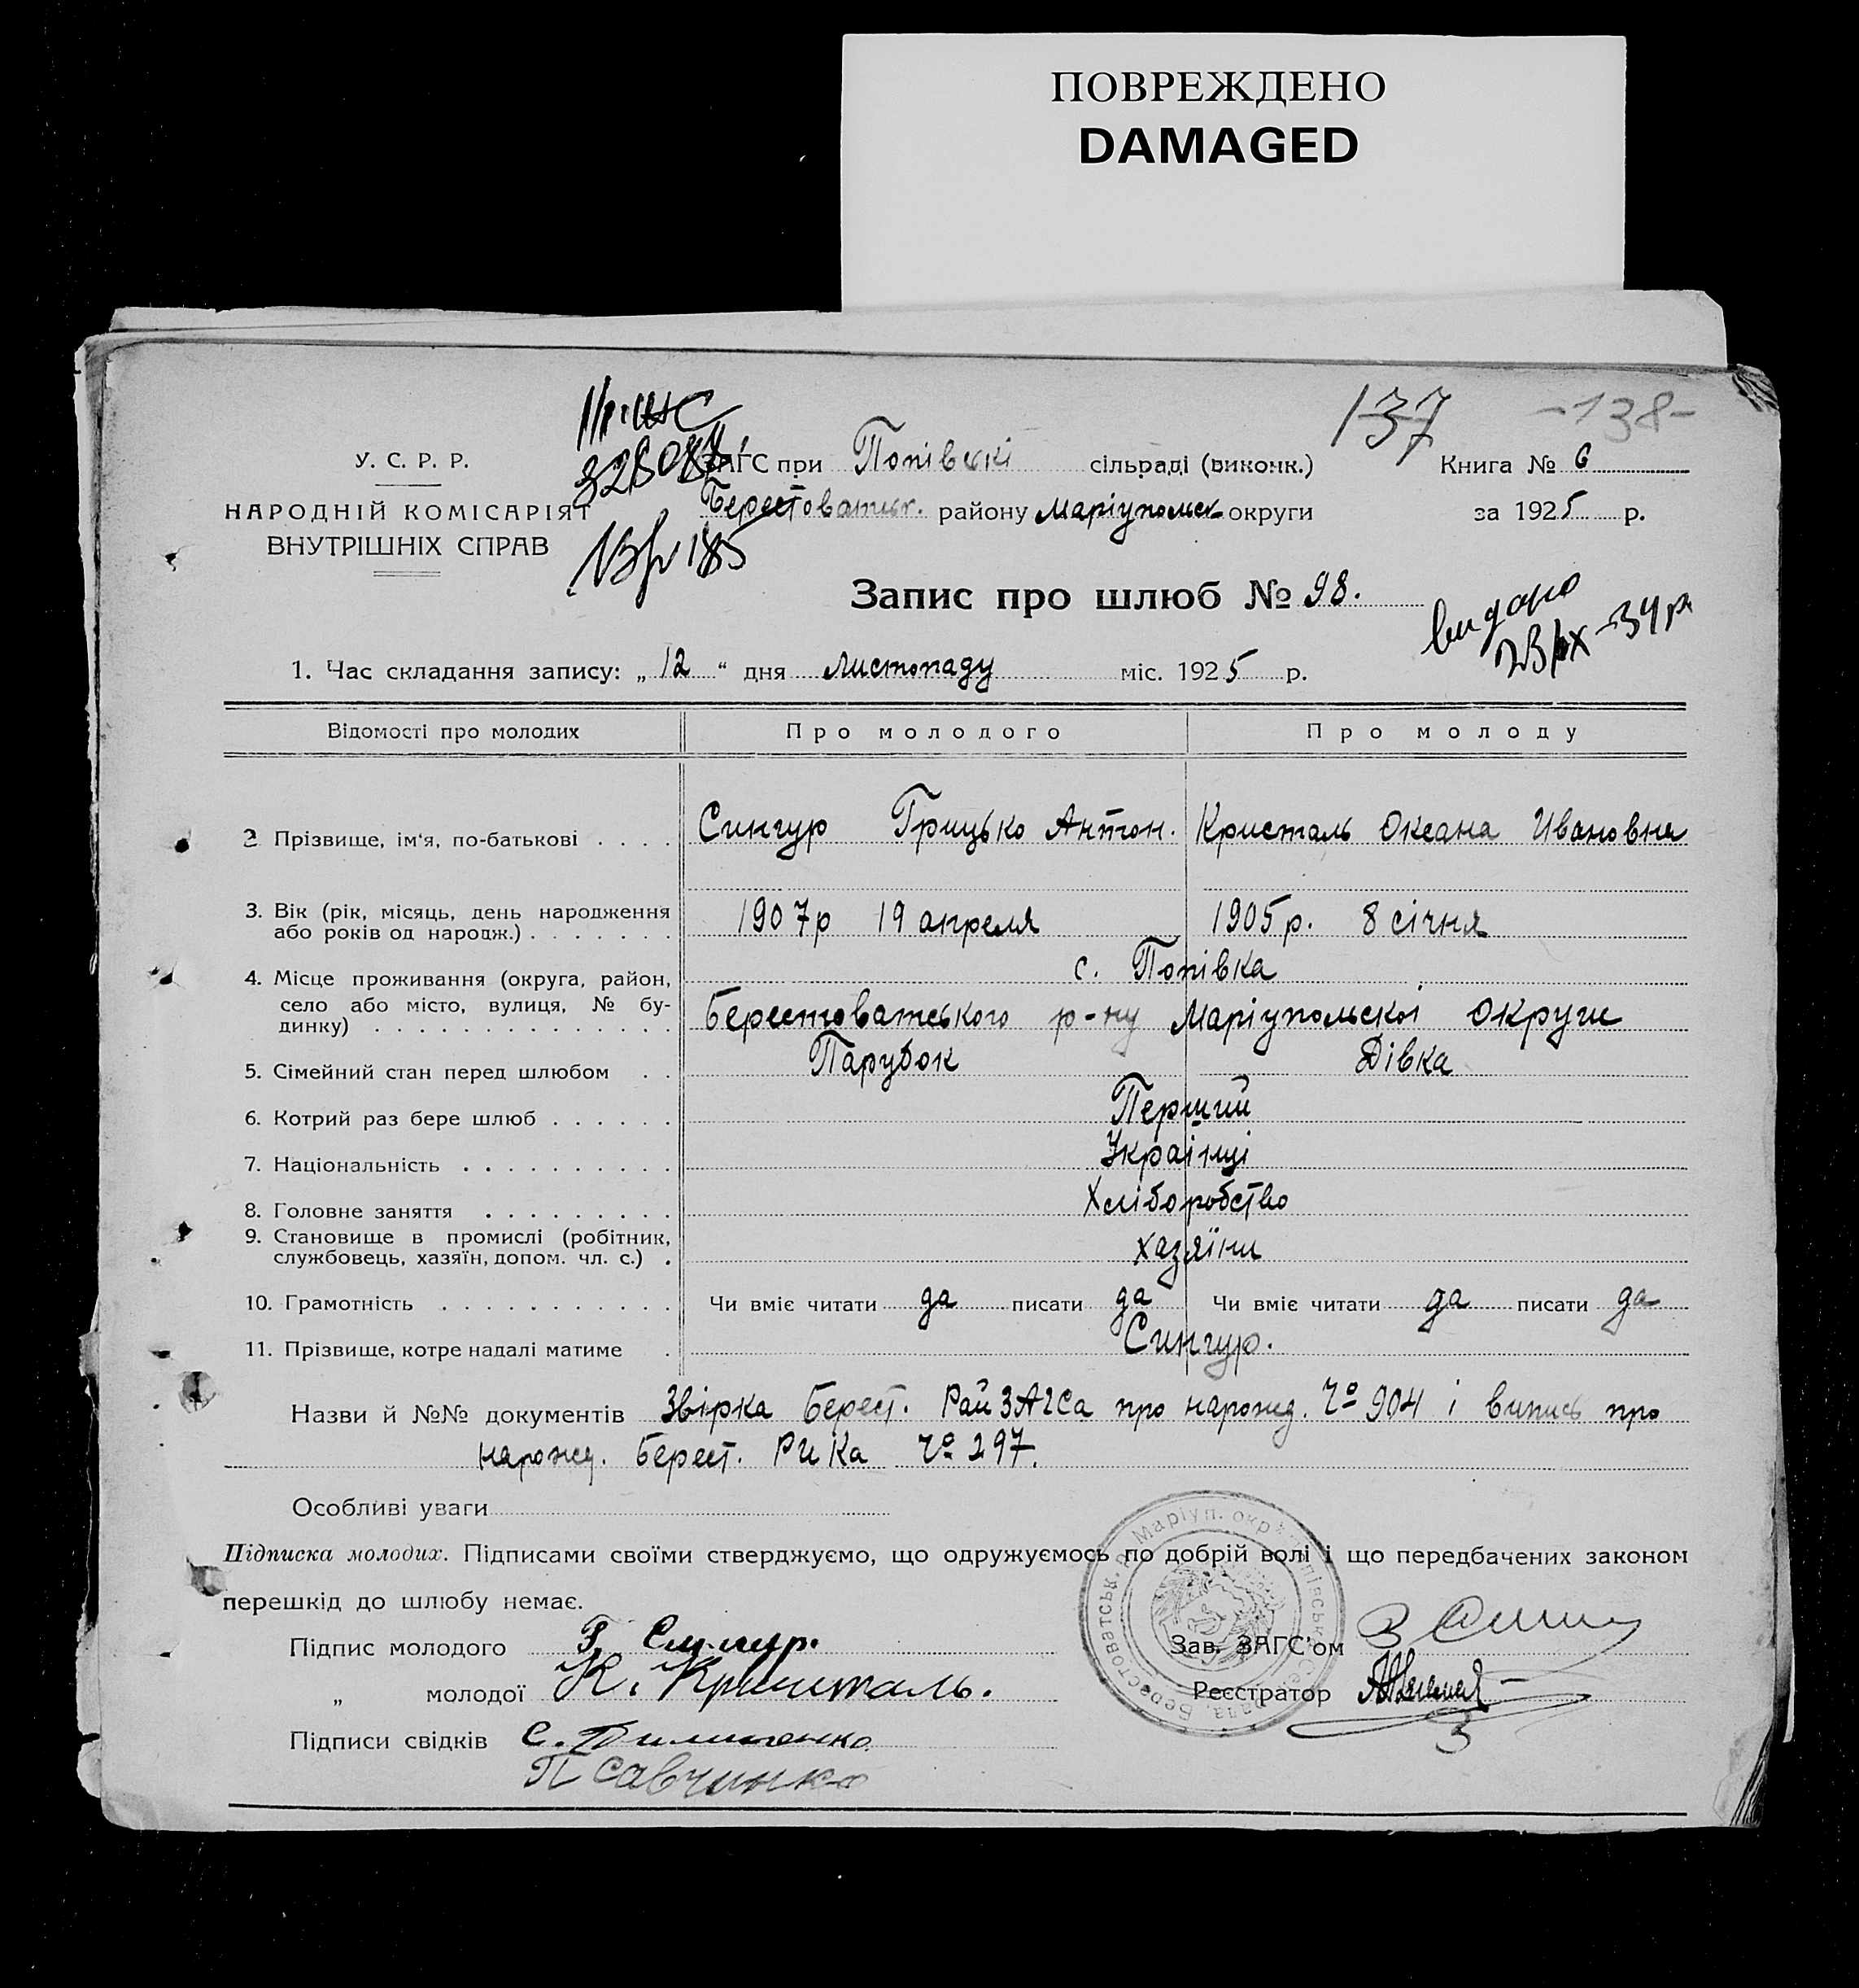 ПОВРЕЖДЕНО
DAMAGED
137 -138-
У. С. Р. Р.
НАРОДНІЙ КОМІСАРІЯТ
ВНУТРІШНІХ СПРАВ
ЗАГС при Попівскі сільраді (виконк.)
Берестоватськ. району Маріупольск округи
Книга № 6
за 1925 р.
Запис про шлюб № 98.
видано
23/ІХ-34 р
1. Час складання запису: „ 12 “ дня Листопаду міс. 1925 р.
Відомості про молодих Про молодого Про молоду
2 Прізвище, ім'я, по-батькові . . . . Сингур Грицько Антон. Кристаль Оксана Ивановна
3. Вік (рік, місяць, день народження 1907р 19 апреля 1905 р. 8 січня
або років од народж.) . . . . . . .
4. Місце проживання (округа, район, с. Попівка
село або місто, вулиця, № бу-
динку) . . . . . . . . . . . . . . Берестоватського р-ну Маріупольскоі Округи
5. Сімейний стан перед шлюбом . . Парубок Дівка
6. Котрий раз бере шлюб . . . . . . Перший
7. Національність . . . . . . . . . . Українці
8. Головне заняття . . . . . . . . . Хліборобство
9. Становище в промислі (робітник,
службовець, хазяїн, допом. чл. с.) . хазяїни
10. Грамотність . . . . . . . . . . . Чи вміє читати да писати да Чи вміє читати да писати да
11. Прізвище, котре надалі матиме . Сингур.
Назви й №№ документів Звірка Берест. РайЗАГСа про нарожд. № 904 і випись про
нарожд. Берест. РИКа № 297.
Особливі уваги
Підписка молодих. Підписами своїми стверджуємо, що одружуємось по добрій волі і що передбачених законом
перешкід до шлюбу немає.
Підпис молодого Г. Сингур.
„ молодої К. Кристаль.
Підписи свідків С.
П Савчинко
Зав. ЗАГС'ом
Реєстратор
Берестоватськ. р. Маріуп. окр.